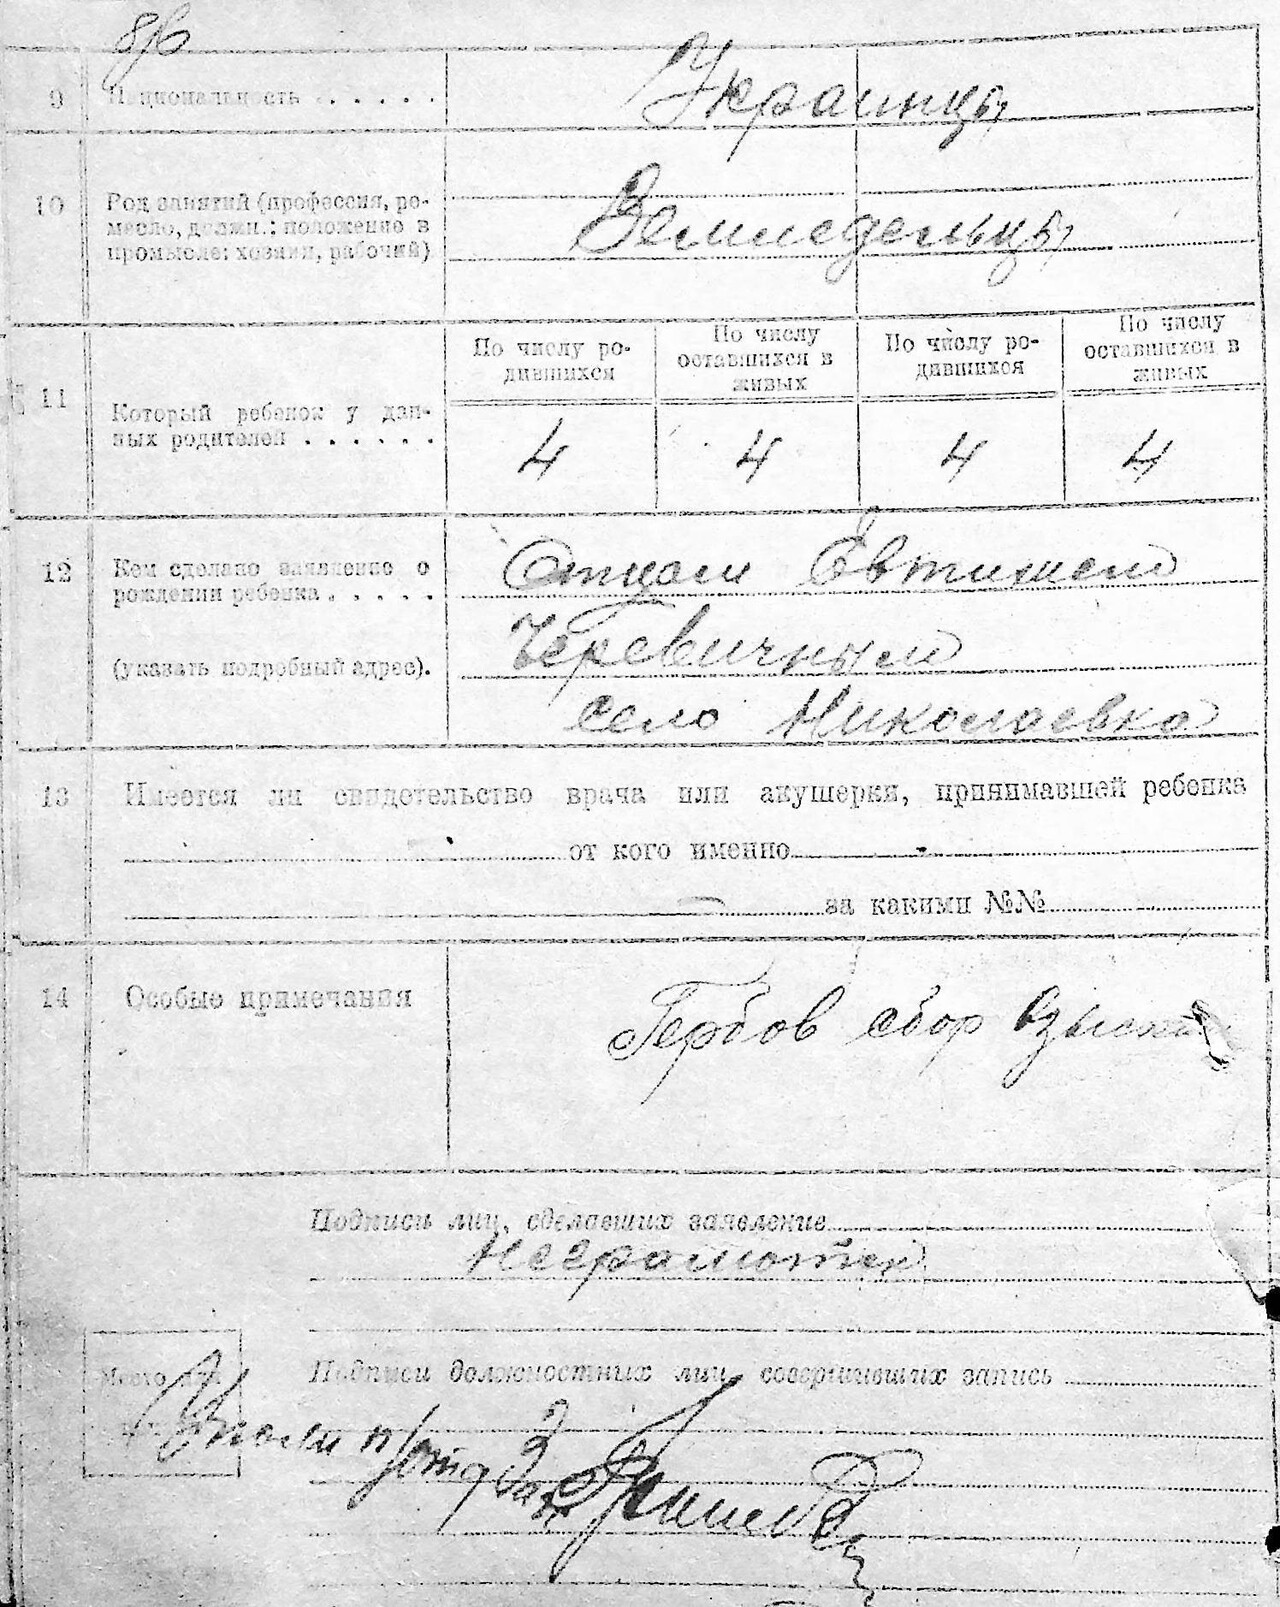 9 Национальность . . . . . Украинцы
10 Род занятий (профессия, ре-
месло, должн.: положение в
промысле: хозяин, рабочий)
Земледельцы
По числу ро-
дившихся
По числу
оставшихся в
живых
По числу ро-
дившихся
По числу
оставшихся в
живых
11 Который ребенок у дан-
ных родителей . . . . . .
4 4 4 4
12 Кем сделано заявление о
рождении ребенка . . . . .
(указать подробный адрес).
Отцом Евтихием
Черевичным
село Николаевка
13 Имеется ли свидетельство врача или акушерки, принимавшей ребенка
от кого именно
за какими №№
14 Особые примечания
Гербов сбор взыскан
Подписи лиц, сделавших заявление
Неграмотен
Место для
Подписи должностных лиц, совершивших запись